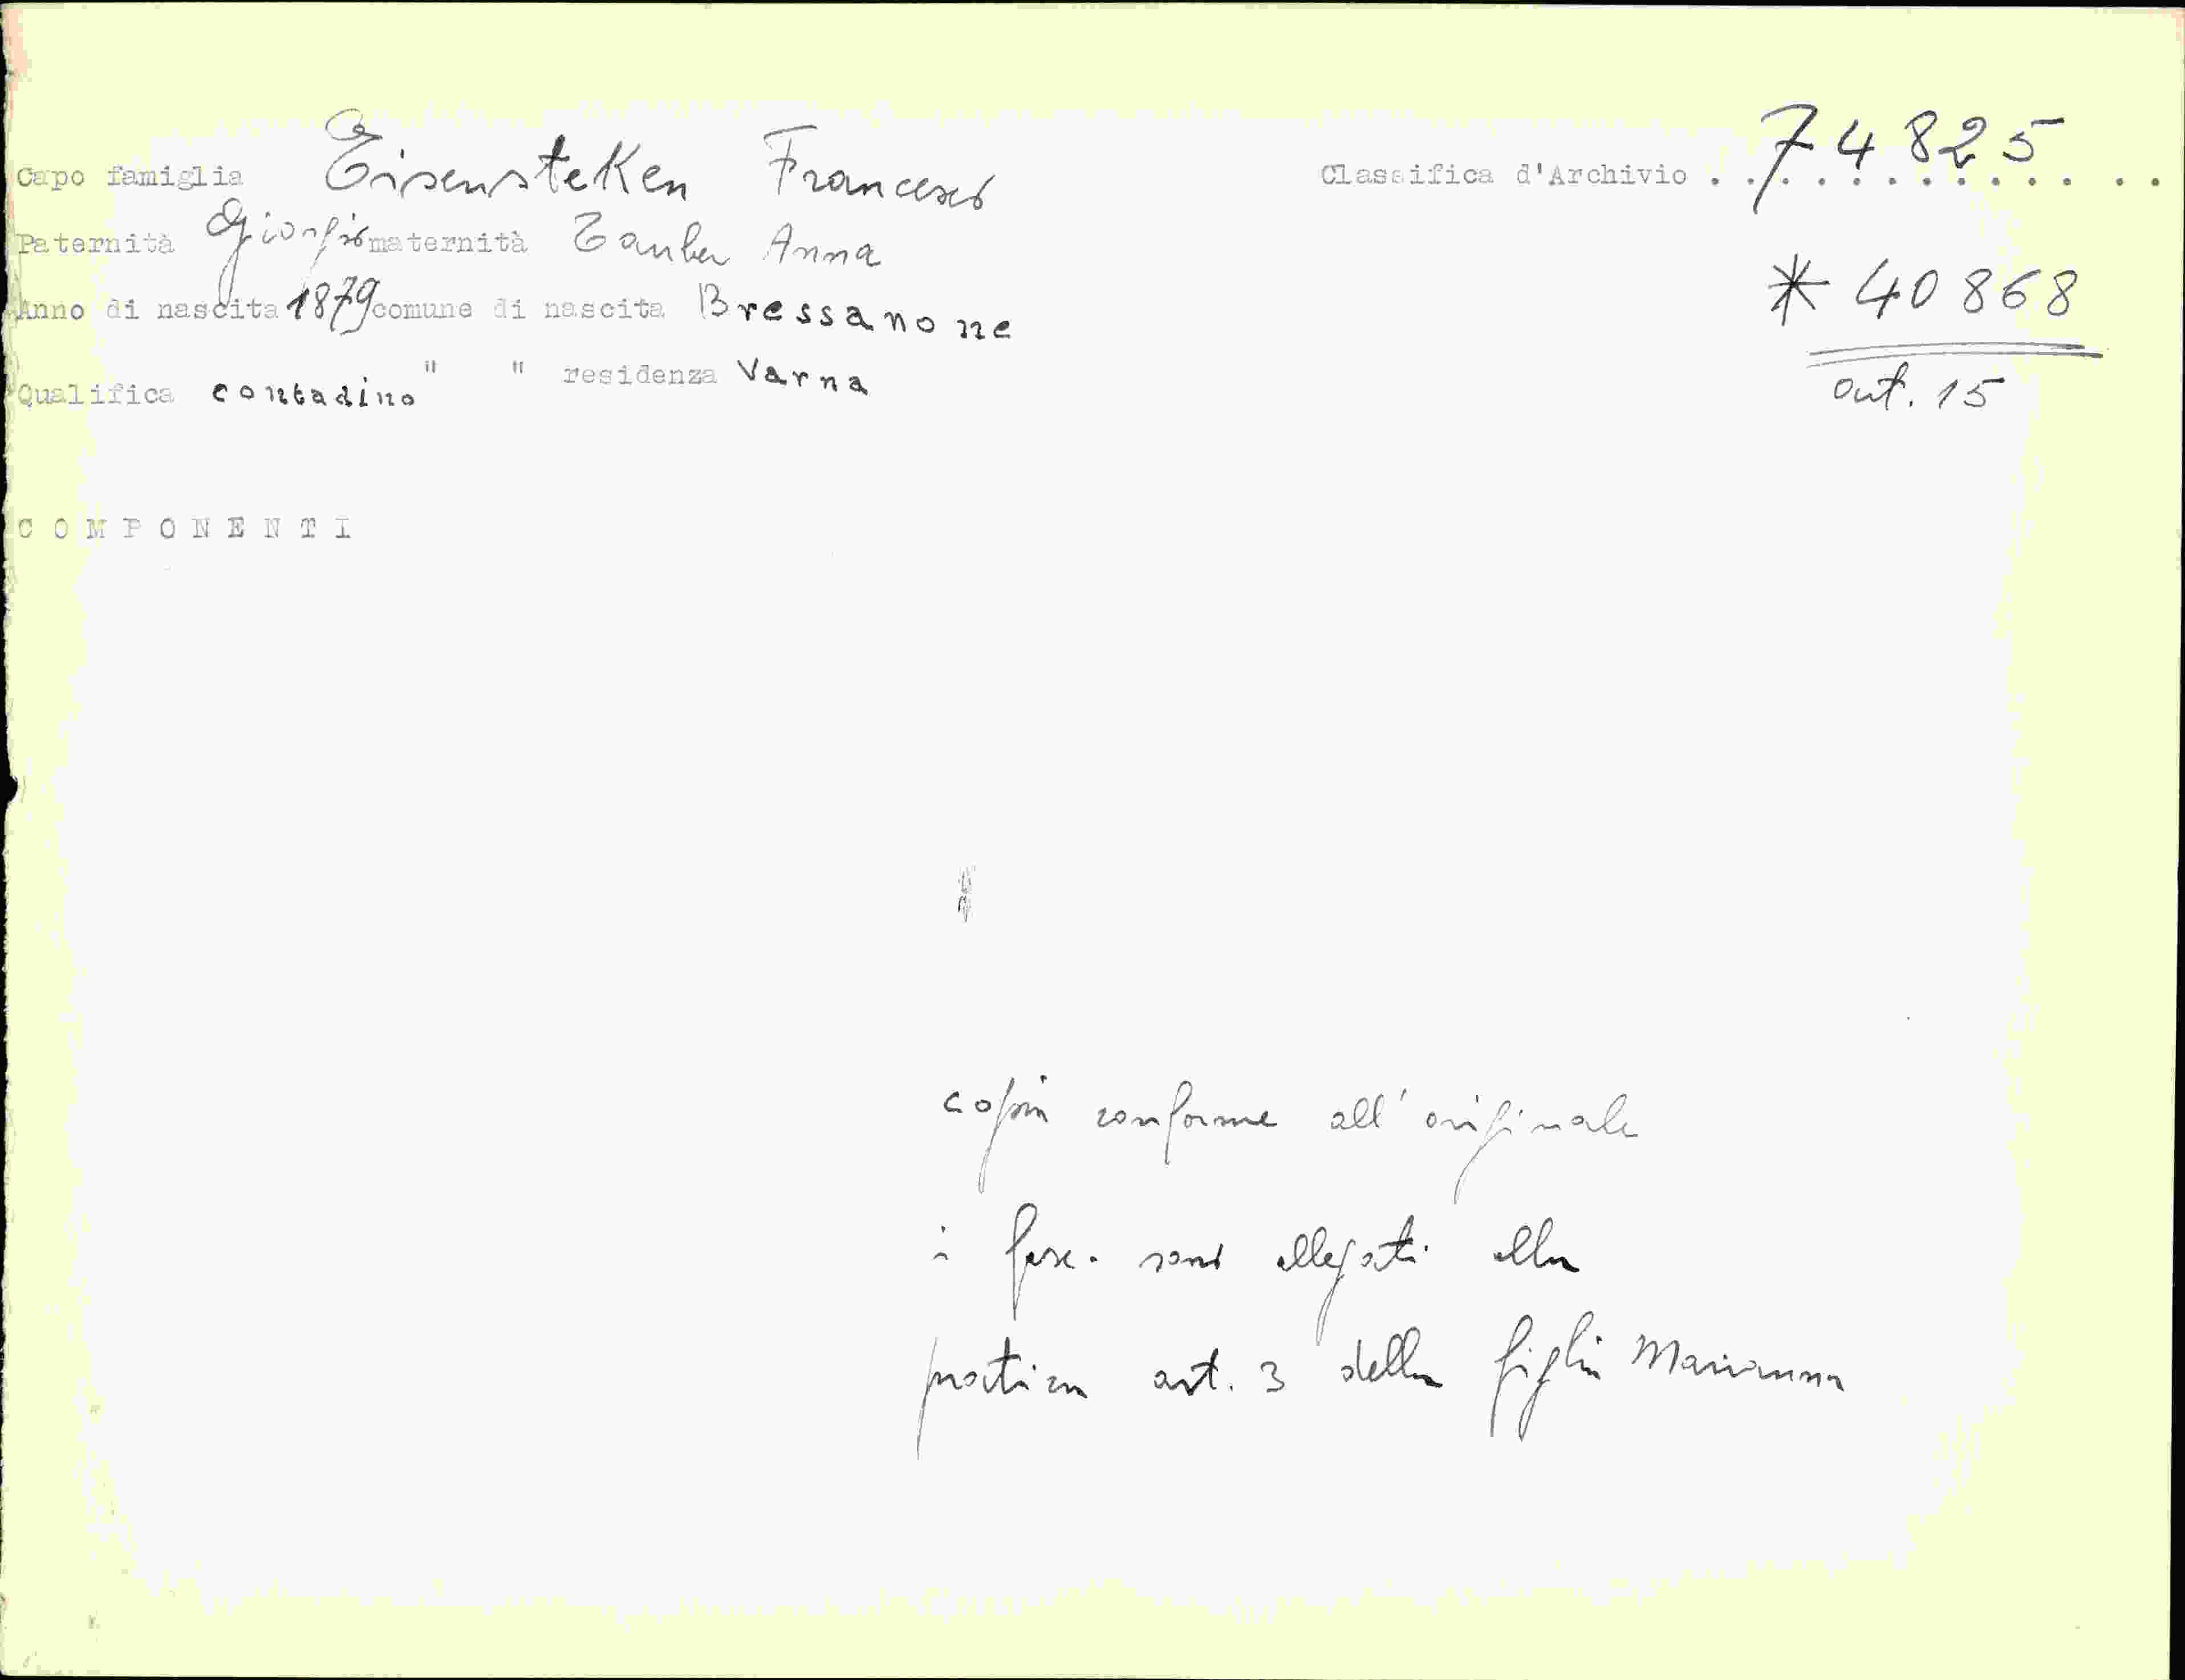 Capo famiglia Eisensteken Francesco
Classifica d'Archivio . . 74825 . .
Paternità Giorgio maternità Tauber Anna
Anno di nascita 1879 comune di nascita Bressanone
* 40868
" " residenza Varna
Qualifica contadino
art. 15
COMPONENTI
copia conforme all'originale
i fasc. sono allegati alla
pratica art. 3 della figlia Marianna